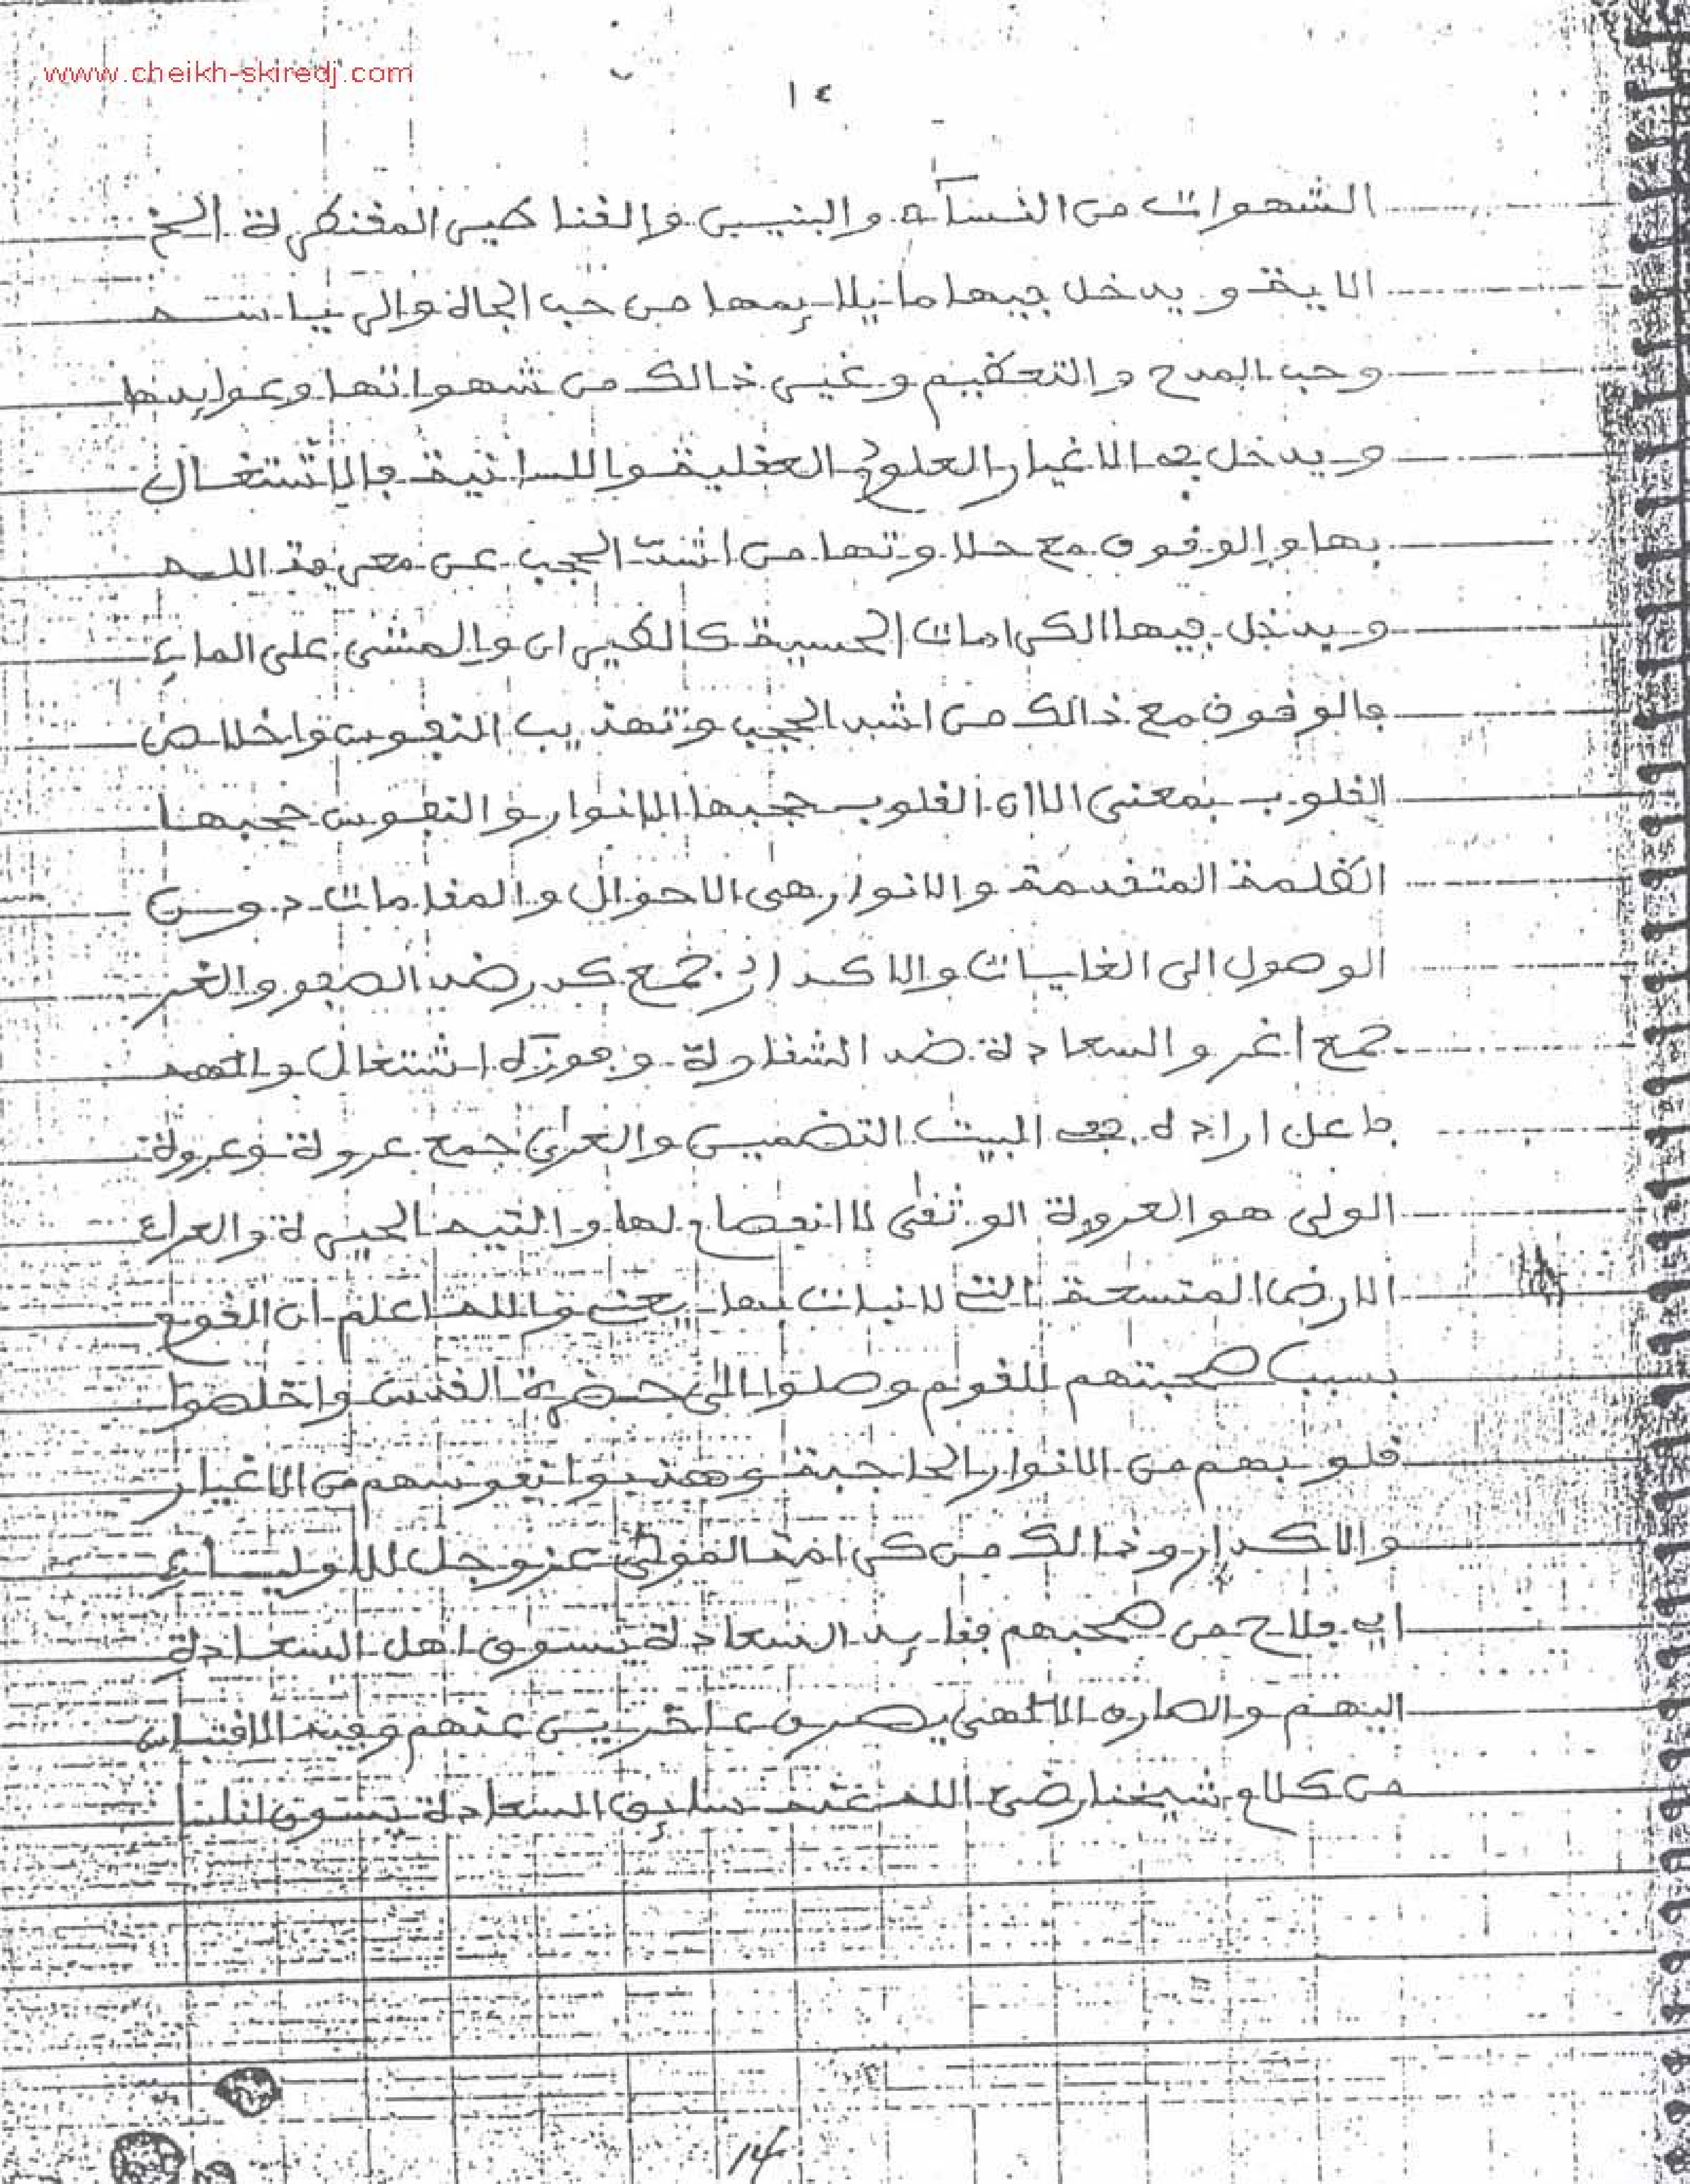 www.cheikh-skiredj.com
١٤
الشهوات من النساء والبنين والقناطير المقنطرة الخ
الاية ويدخل فيها ما يلايمها من حب الجاه والرياسة
وحب المدح والتعظيم وغير ذالك من شهواتها وعوايدها
ويدخل في الاغيار العلوم العقلية واللسانية فالاشتغال
بها والوقوف مع حلاوتها من اشد الحجب عن معرفة الله
ويدخل فيها الكرامات الحسية كالطيران والمشي على الماء
فالوقوف مع ذالك من اشد الحجب وتهذيب النفوس واخلاص
القلوب بمعنى الاان القلوب حجبها الانوار والنفوس حجبها
الظلمة المتقدمة والانوار هى الاحوال والمقامات دون
الوصول الى الغايات والاكدار جمع كدر ضد الصفو والغر
جمع اغر والسعادة ضد الشقاوة اشتغال
فاعل اراده في البيت التضمين والعرى جمع عروة وعروة
الولى هو العروة الوثقى لا انفصام لها والتيه الحيرة والعراء
الارض المتسعة التي لا نبات بها يعني والله اعلم ان القوم
بسبب صحبتهم للقوم وصلوا الى حضرة القدس واخلصوا
قلوبهم من الانوار الحاجبة وهذبوا نفوسهم من الاغيار
والاكدار وذالك من كرامة المولى عز وجل للاولياء
اي فلاح من صحبهم فقايد السعادة تسوق اهل السعادة
اليهم والصارف الالهى يصرف ءاخرين عنهم وفيه الاقتباس
من كلام شيخنا رضي الله عنه سايق السعادة يسوق اناسا
14